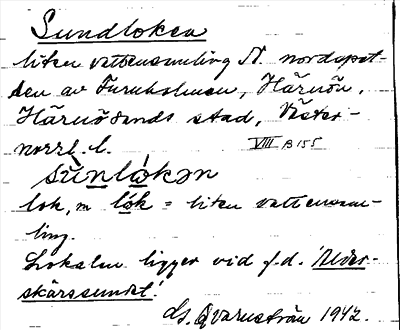 Sundloken
liten vattensamling N. nordspet-
sen av Furuholmen, Härnön,
Härnösands stad, Väster-
norrl. l.
VIII B 155
sùnlókən
lok, m lók = liten vattensam-
ling.
Lokalen ligger vid f.d. 'Alder-
skärssundet'.
G. Qvarnström 1942.